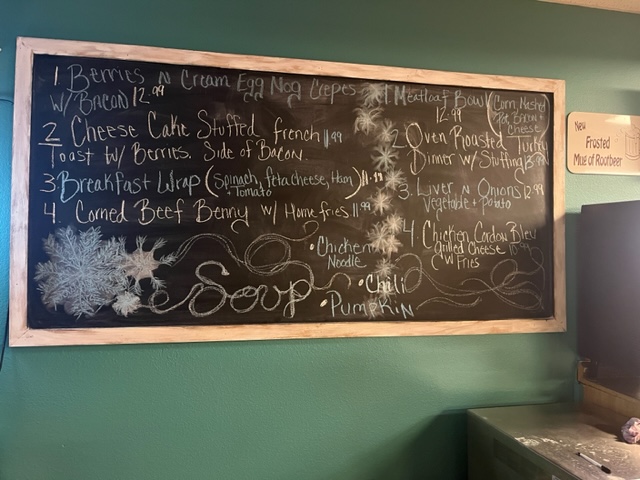 1 Berries N Cream Egg Nog Crepes
W/ Bacon 12.99
2 Cheese Cake Stuffed french 11.99
Toast w/ Berries. Side of Bacon.
3. Breakfast Wrap (Spinach, feta cheese, Ham) 11.99
+ Tomato
4. Corned Beef Benny w/ Home fries 11.99
Soup
• Chicken
Noodle
• Chili
• Pumpkin
1. Meatloaf Bowl (Corn, Mashed
12.99 Bacon +
Cheese
2. Oven Roasted Turky
Dinner w/ Stuffing
3. Liver N Onions 12.99
Vegetable + Potato
4 Chicken Cordon Bleu
Grilled Cheese
w/ Fries
New
Frosted
Mug of Rootbeer